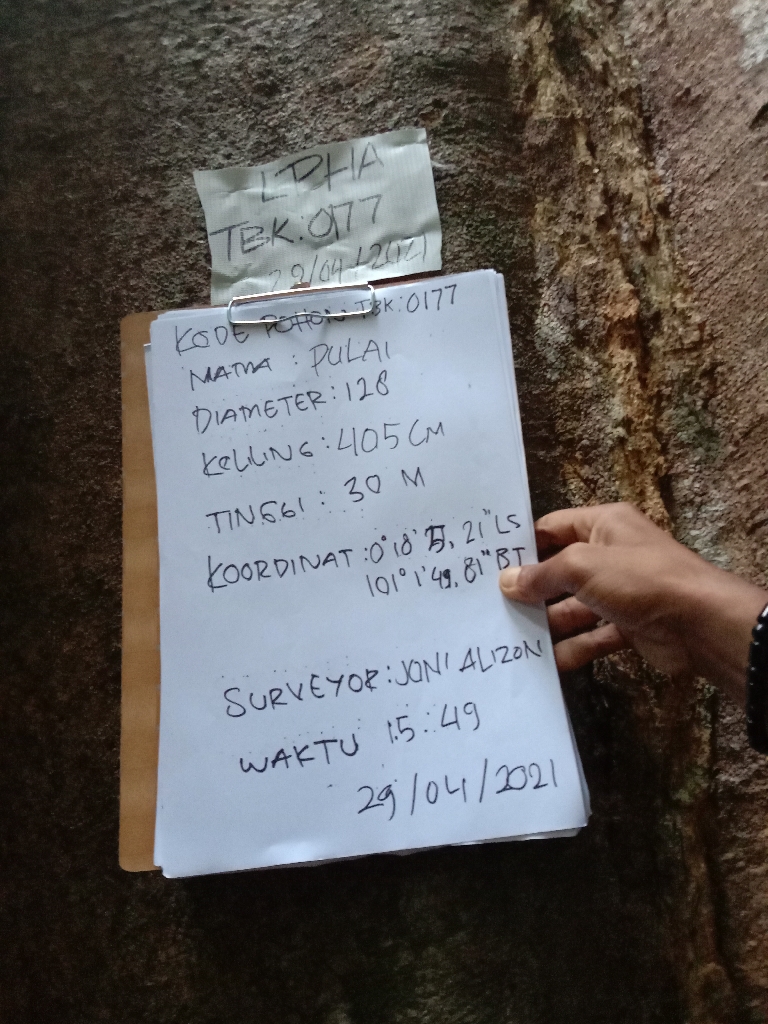 LPHA
TBK:0177
29/04/2021
KODE POHON:TBK:0177
NAMA : PULAI
DIAMETER:128
KELLING:405 CM
TINGGI : 30 M
KOORDINAT:0°18' , 21" LS
101°1'49,81" BT
SURVEYOR:JONI ALIZON
WAKTU 15:49
29/04/2021